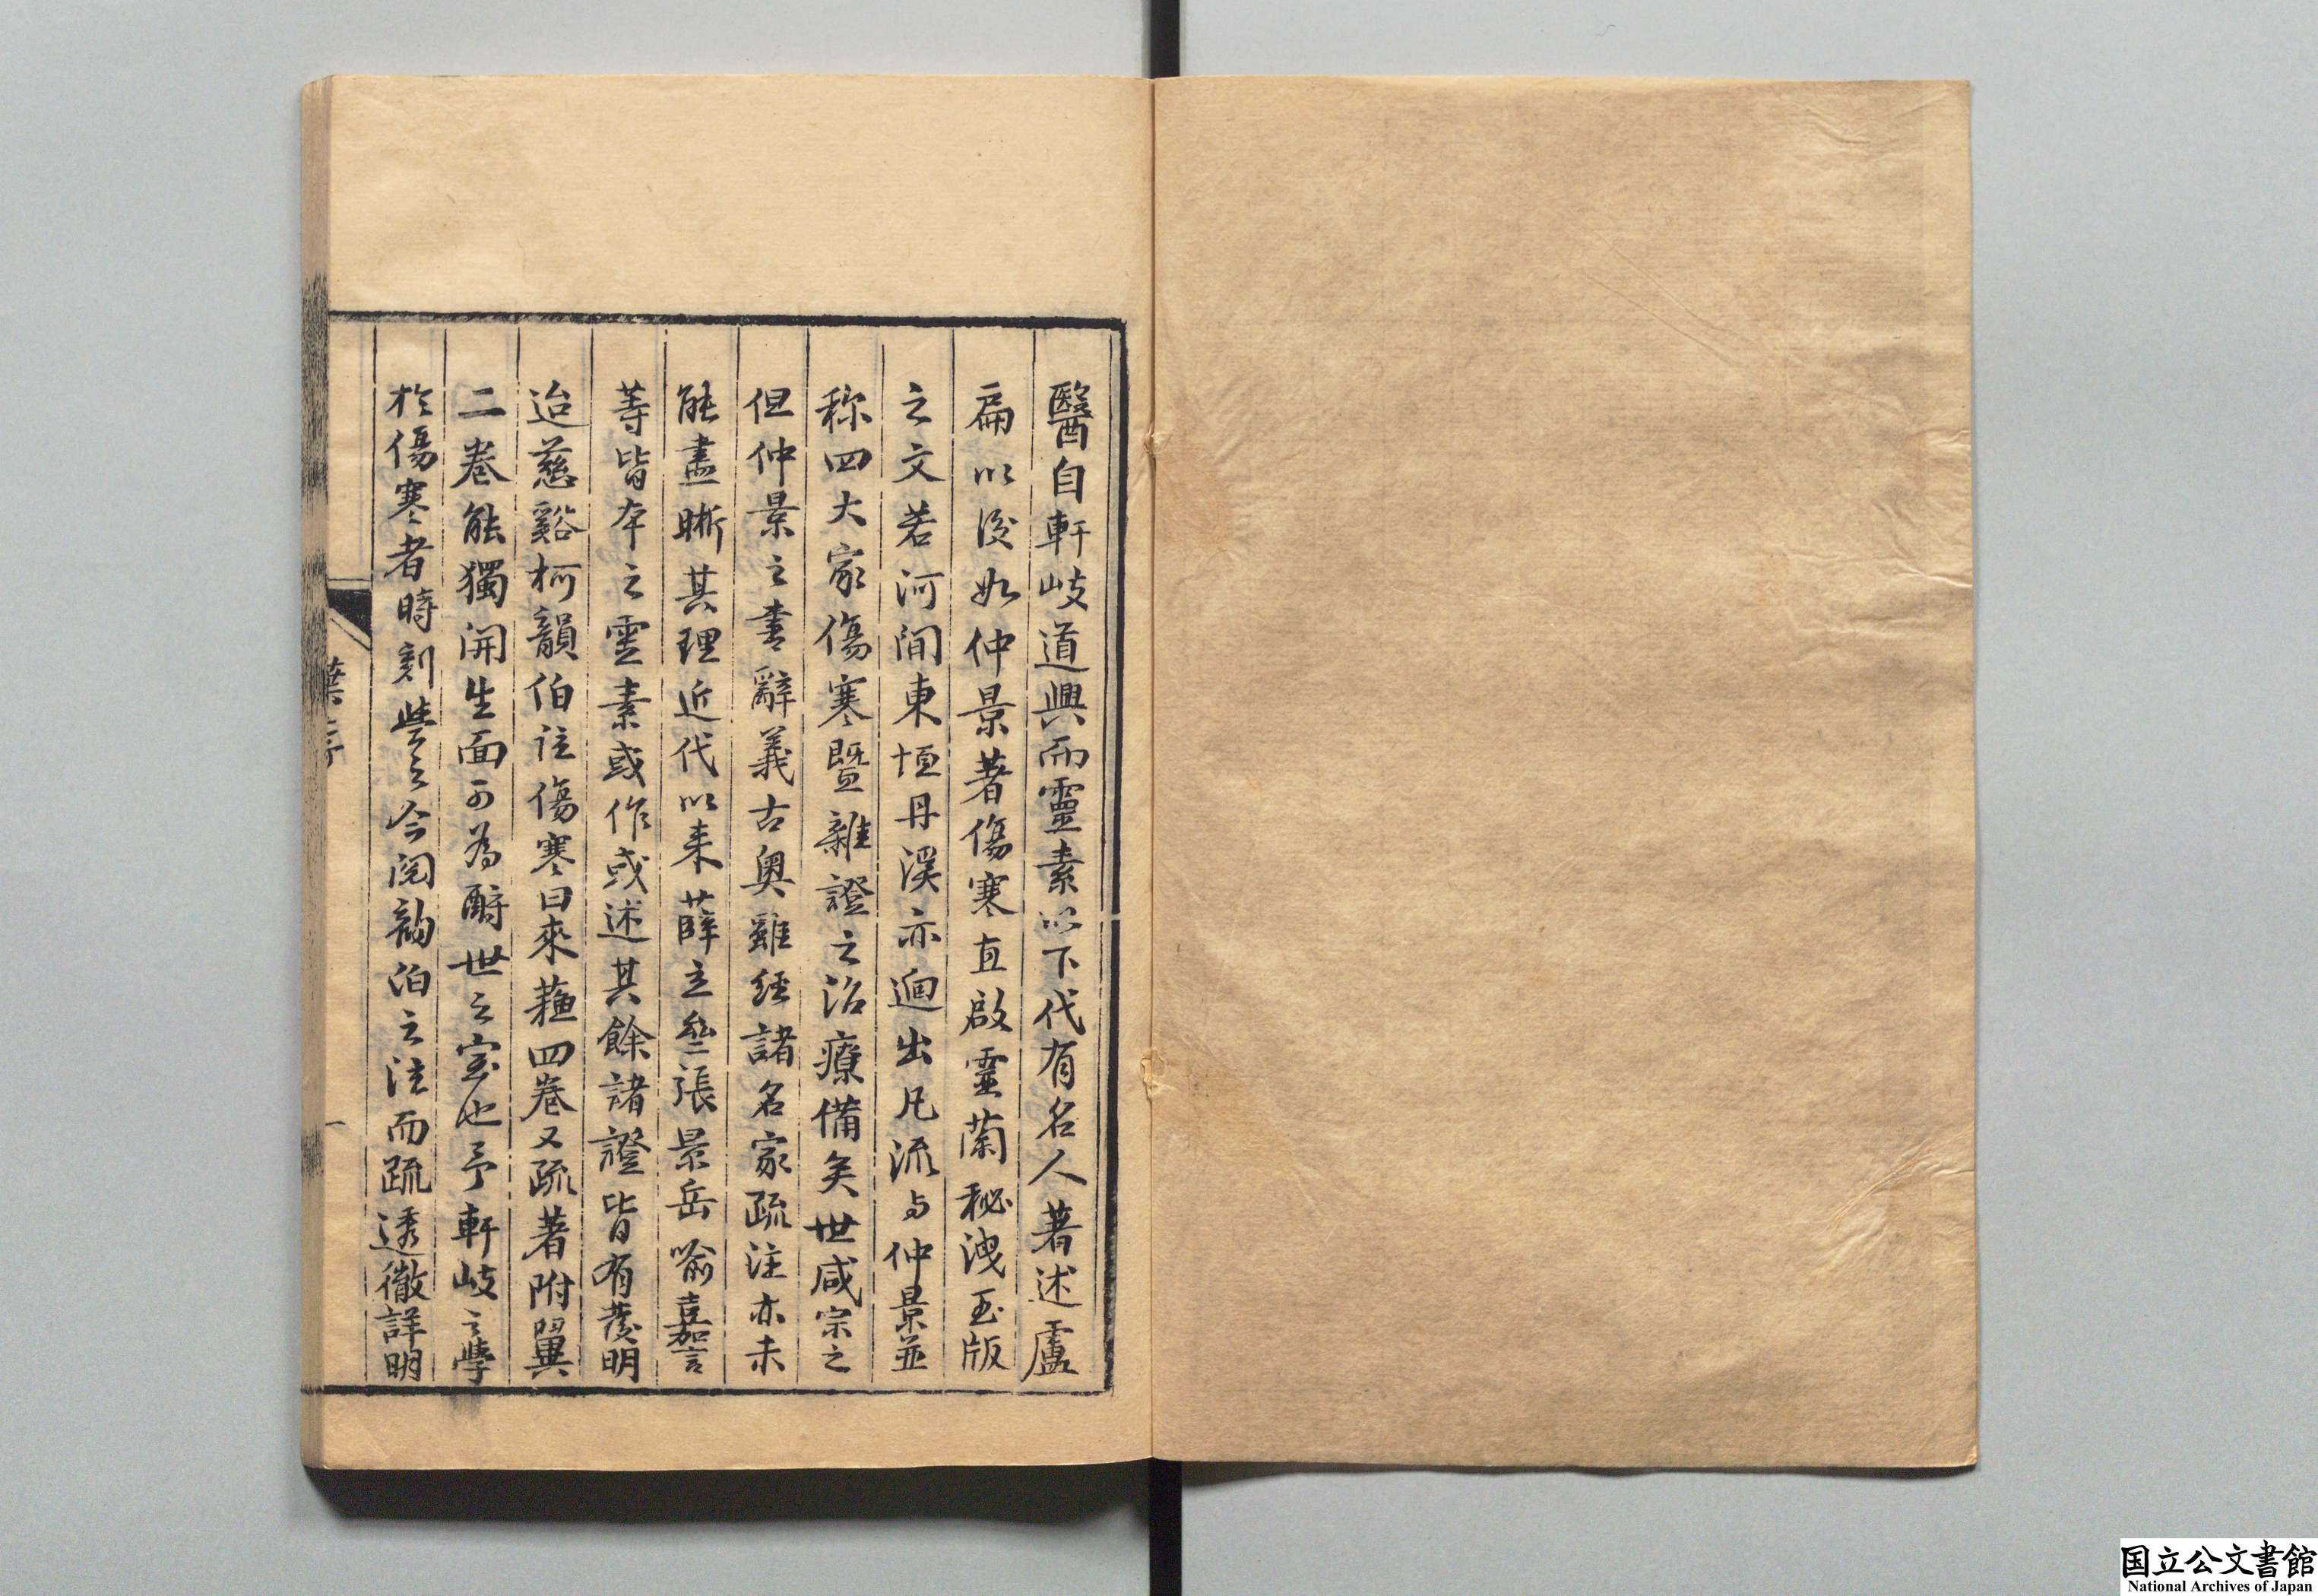 醫自軒岐道興而靈素以下代有名人著述盧
扁以後如仲景著傷寒直啟靈蘭秘洩玉版
之文若河間東垣丹溪亦迥出凡流与仲景並
称四大家傷寒暨雜證之治療備矣世咸宗之
但仲景之書辭義古奧雖經諸名家疏注亦未
能盡晰其理近代以来薛立齋張景岳喻嘉言
等皆本之霊素或作或述其餘諸證皆有發明
迨慈谿柯韻伯註傷寒曰來蘓四卷又疏著附翼
二卷能獨開生面可為酧世之寶也予軒岐之學
於傷寒者時刻今閱韵伯之注而疏透徹詳明
葉序
一
国立公文書館
National Archives of Japan